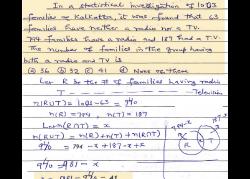 In a statistical investigation of 1003
families in Kolkatta, it was found that 63
families have neither a radio nor a T.V.
794 families have a radio and 187 had a T.V.
The number of families in the group having
both a radio and T.V is
a) 36 b) 32 c) 41 d) None of these
Let R be the # of families having radio
T Television
n(RUT) = 1003 - 63 = 940
n(R) = 794, n(T) = 187
Let n(R∩T) = x
n(RUT) = n(R) + n(T) - n(R∩T)
940 = 794 + 187 - x
940 = 981 - x
x = 981 - 940 = 41
R
T
x
794-x
187-x